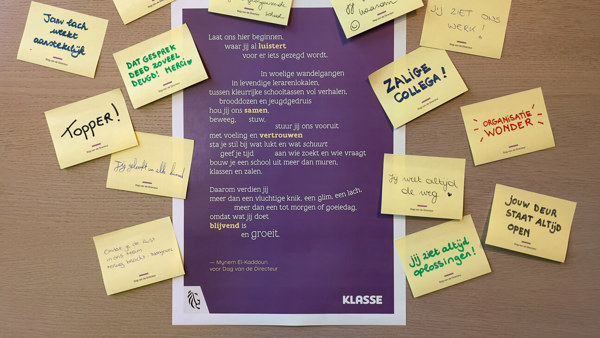 Jouw lach
werkt
aanstekelijk
DAT GESPREK
DEED ZOVEEL
DEUGD! MERCI ♥
TOPPER!
school
waarom
JIJ ZIET ONS
WERK!
ZALIGE
COLLEGA!
ORGANISATIE
WONDER
Jij gelooft in elk kind
Jij wist altijd
de weg ♥
JOUW DEUR
STAAT ALTIJD
OPEN
jij ziet altijd
oplossingen!
Omdat je de rust
in ons team
Laat ons hier beginnen,
waar jij al luistert
voor er iets gezegd wordt.
In woelige wandelgangen
in levendige lerarenlokalen,
tussen kleurrijke schooltassen vol verhalen,
brooddozen en jeugdgedruis
hou jij ons samen,
beweeg, stuw,
stuur jij ons vooruit
met voeling en vertrouwen
sta je stil bij wat lukt en wat schuurt
geef je tijd aan wie zoekt en wie vraagt
bouw je een school uit meer dan muren,
klassen en zalen.
Daarom verdien jij
meer dan een vluchtige knik, een glim, een lach,
meer dan een tot morgen of goeiedag,
omdat wat jij doet
blijvend is
en groeit.
— Myriem El-Kaddouri
voor Dag van de Directeur
KLASSE